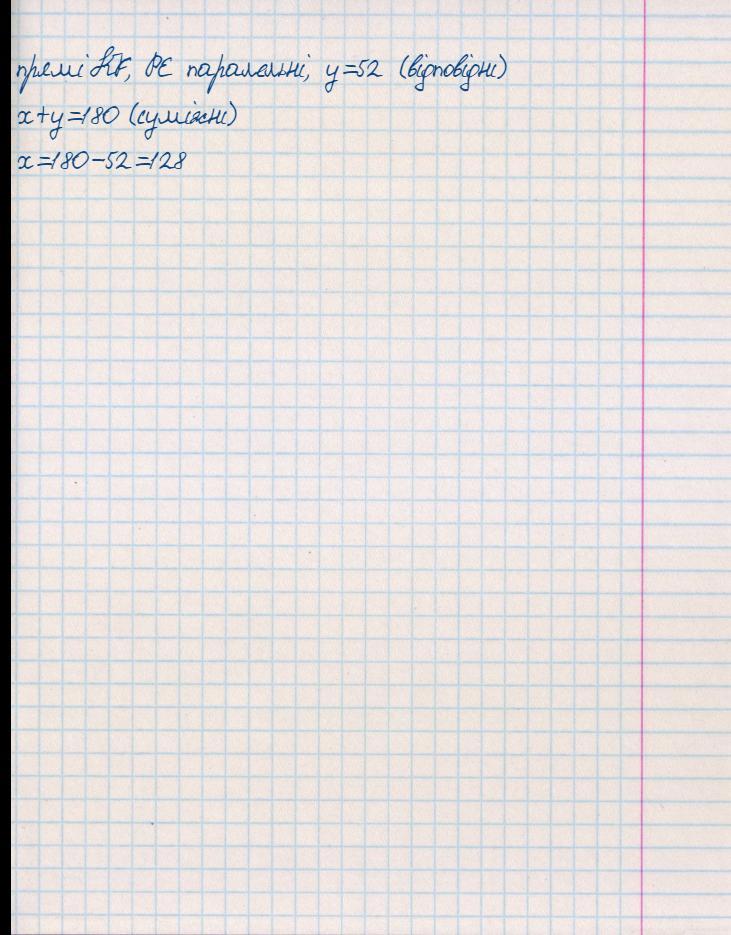 прямі KF, PE паралельні, y=52 (відповідні)
x+y=180 (суміжні)
x=180-52=128